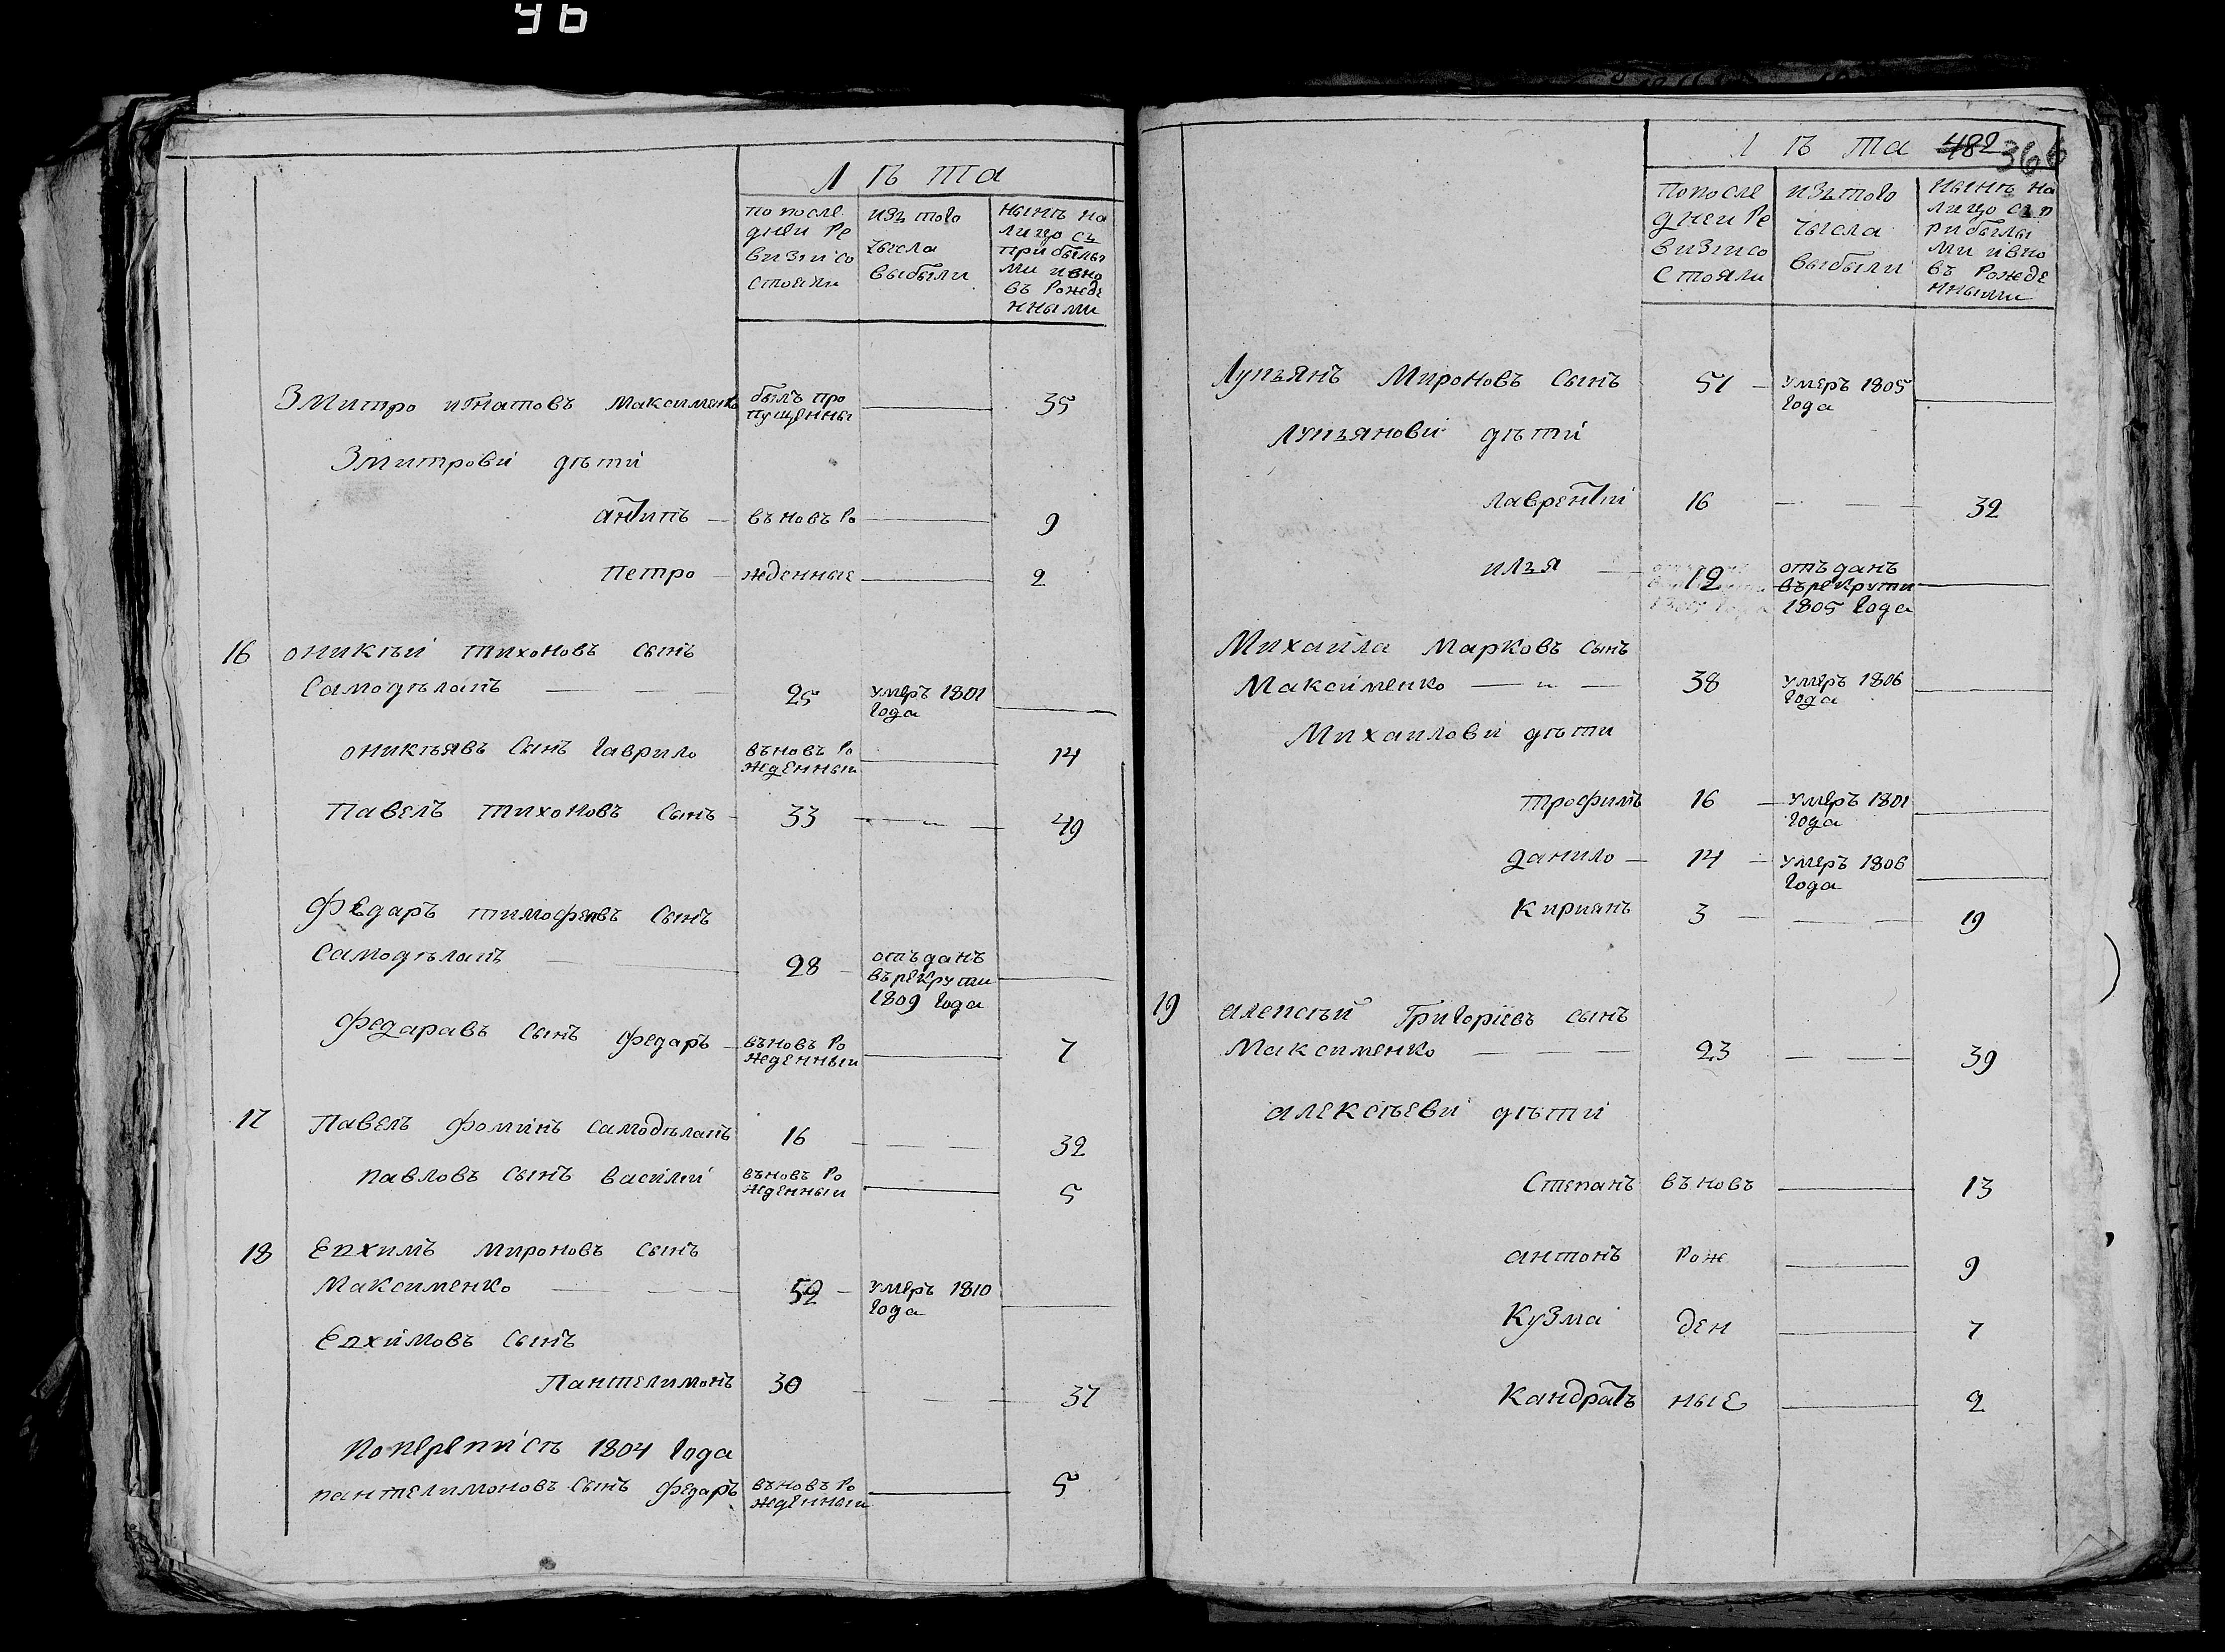 96
Лѣта
по после
дней ре
визіи со
стояли
изъ того
числа
выбыли
нынѣ на
лицо съ
прибылы
ми и вно
въ рожде
нными
Змитро игнатовъ Максименко былъ про
пущенны — 35
Змитрови дѣти
антипъ — въновъ ро — 9
петро — жденные — 2
16 оникѣй тихоновъ сынъ
Самодѣлапъ — — 25 умеръ 1801
года —
оникѣявъ сынъ гаврило въновъ ро
жденный — 14
Павелъ тихоновъ сынъ — 33 — „ — 49
Федаръ тимофѣевъ сынъ
Самодѣлапъ — — 28 — отъданъ
въ рекрути
1809 года —
Федаравъ сынъ Федаръ — въновъ ро
жденный — 7
17 Павелъ фоминъ самодѣлапъ 16 — — — 32
павловъ сынъ василій въновъ ро
жденный — 5
18 Евхимъ мироновъ сынъ
Максименко — — 52 — умеръ 1810
года —
Евхимовъ сынъ
Пантелимонъ 30 — — — 37
Поперепісѣ 1804 года
пантелимоновъ сынъ федаръ въновъ ро
жденный — 5
Лѣта 482 366
по после
дней ре
визіи со
стояли
изъ того
числа
выбыли
нынѣ на
лицо съ п
рибылы
ми и вно
въ рожде
нными
Лупъянъ Мироновъ сынъ 51 — умеръ 1805
года —
Лупъянови дѣти
лаврентій 16 — — — 32
илья — 12 отъданъ
въ рекрути
1805 года —
Михаила Марковъ сынъ
Максименко — „ — 38 умеръ 1806
года —
Михаилови дѣти
трофимъ 16 — умеръ 1801
года —
данило — 14 — умеръ 1806
года —
Кириянъ 3 — — — 19
19 алексѣй Григоріевъ сынъ
Максименко — — — 23 — — 39
алексѣеви дѣти
Степанъ въновъ — 13
антонъ рож — 9
Кузма ден — 7
Кандратъ ные — 2